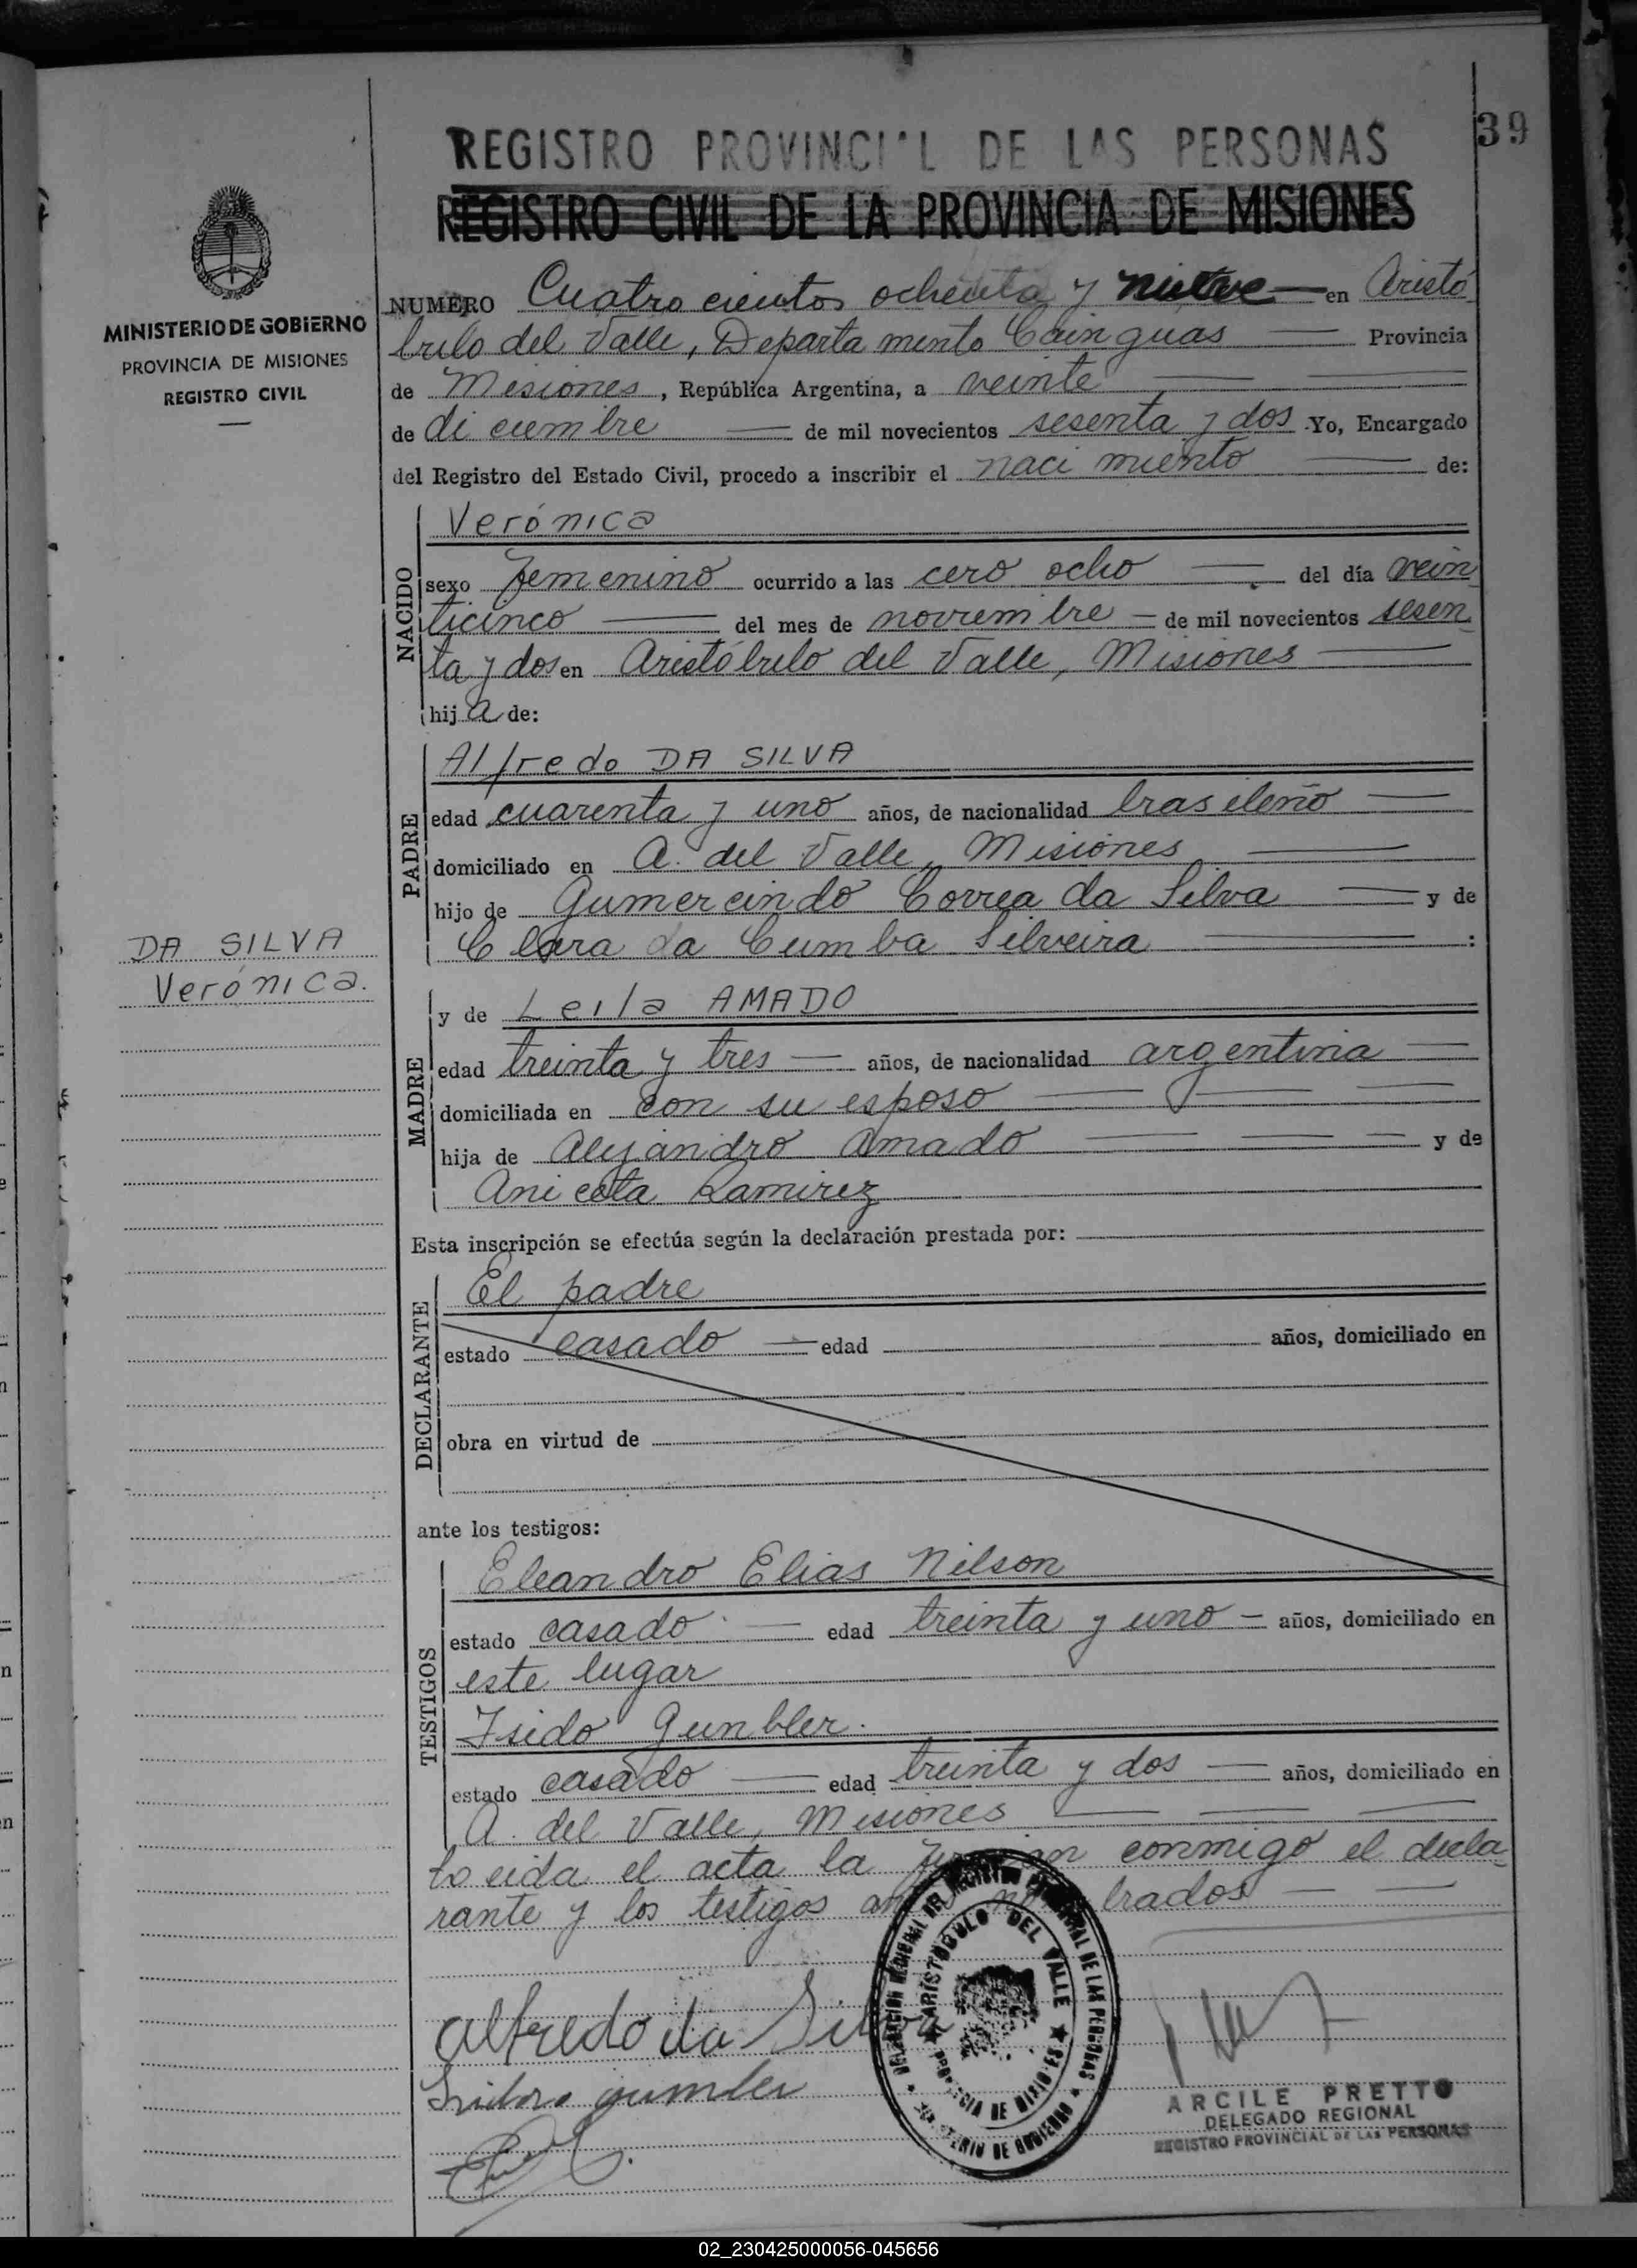 39
REGISTRO PROVINCI'L DE LAS PERSONAS
REGISTRO CIVIL DE LA PROVINCIA DE MISIONES
MINISTERIO DE GOBIERNO
PROVINCIA DE MISIONES
REGISTRO CIVIL
NUMERO Cuatro cientos ochenta y nueve — en Aristó
bulo del Valle, Departamento Cainguas — Provincia
de Misiones, República Argentina, a veinte — —
de diciembre — de mil novecientos sesenta y dos Yo, Encargado
del Registro del Estado Civil, procedo a inscribir el nacimiento — de:
NACIDO
Verónica
sexo femenino ocurrido a las cero ocho — del día vein
ticinco — del mes de noviembre — de mil novecientos sesen
ta y dos en Aristóbulo del Valle, Misiones —
hija de:
PADRE
Alfredo DA SILVA
edad cuarenta y uno años, de nacionalidad brasileño —
domiciliado en A. del Valle, Misiones —
hijo de Gumercindo Correa da Silva — y de
Clara da Cumba Silveira — :
DA SILVA
Verónica.
MADRE
y de Leila AMADO
edad treinta y tres — años, de nacionalidad argentina —
domiciliada en con su esposo — — —
hija de Alejandro Amado — — — y de
Aniceta Ramirez
Esta inscripción se efectúa según la declaración prestada por:
DECLARANTE
El padre
estado casado — edad años, domiciliado en
obra en virtud de
ante los testigos:
TESTIGOS
Eleandro Elias Nilson
estado casado — edad treinta y uno — años, domiciliado en
este lugar
Isido Gunbler.
estado casado — edad treinta y dos — años, domiciliado en
A. del Valle, Misiones — — —
Leida el acta la firman conmigo el decla-
rante y los testigos ante nombrados — —
alfredo da Silva
Isidoro gumbler
DELEGACION REGIONAL DEL REGISTRO PROVINCIAL DE LAS PERSONAS
MINISTERIO DE GOBIERNO
ARISTOBULO DEL VALLE
PROVINCIA DE MISIONES
ARCILE PRETTO
DELEGADO REGIONAL
REGISTRO PROVINCIAL DE LAS PERSONAS
02_230425000056-045656